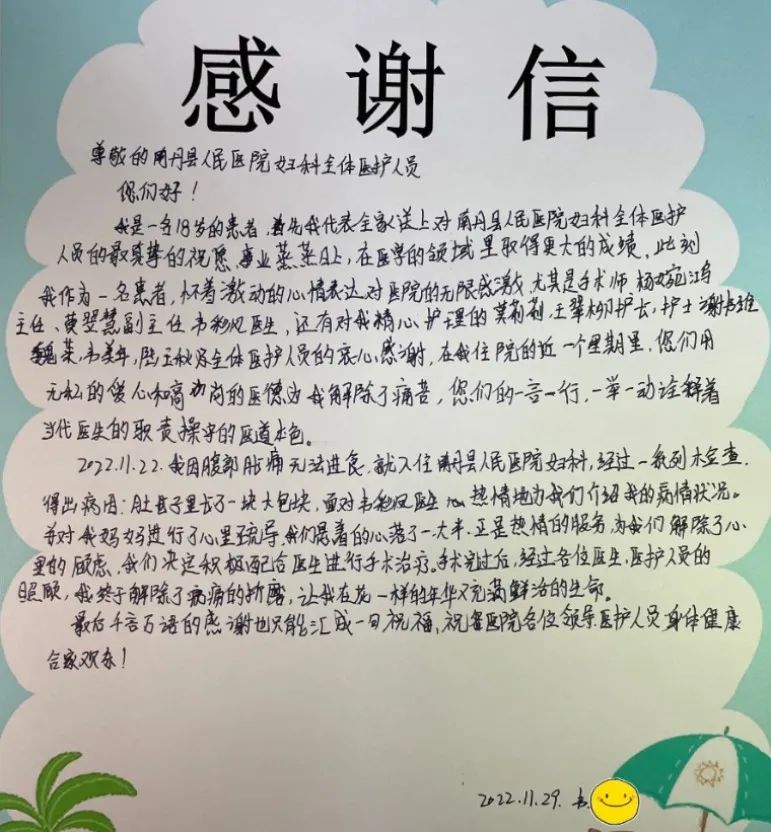 感谢信
尊敬的南丹县人民医院妇科全体医护人员
您们好！
我是一名18岁的患者，首先我代表全家送上对南丹县人民医院妇科全体医护
人员的最真挚的祝愿，事业蒸蒸日上，在医学的领域里取得更大的成绩，此刻
我作为一名患者，怀着激动的心情表达对医院的无限感激，尤其是手术师，杨婉鸿
主任、黄翌慧副主任韦秒凤医生，还有对我精心护理的莫莉莉，王翠柳护长，护士谢
韦美年，陆玉秋及全体医护人员的衷心感谢，在我住院的近一个星期里，您们用
无私的爱心和高尚的医德为我解除了痛苦，您们的一言一行，一举一动诠释着
当代医生的职责操守的医道本色。
2022.11.22.我因腹部胀痛无法进食，就入住南丹县人民医院妇科，经过一系列检查，
得出病因：肚子里长了一块大包块，面对韦秒凤医生热情地为我们介绍我的病情状况。
并对我妈妈进行了心里疏导，我们悬着的心落了一大半，正是热情的服务，为我们解除了心
里的顾虑，我们决定积极配合医生进行手术治疗，手术完过后，经过各位医生，医护人员的
照顾，我终于解除了病痛的折磨，让我在花一样的年华又充满鲜活的生命。
最后千言万语的感谢也只能汇成一句祝福，祝各医院各位领导医护人员身体健康
合家欢乐！
2022.11.29.书